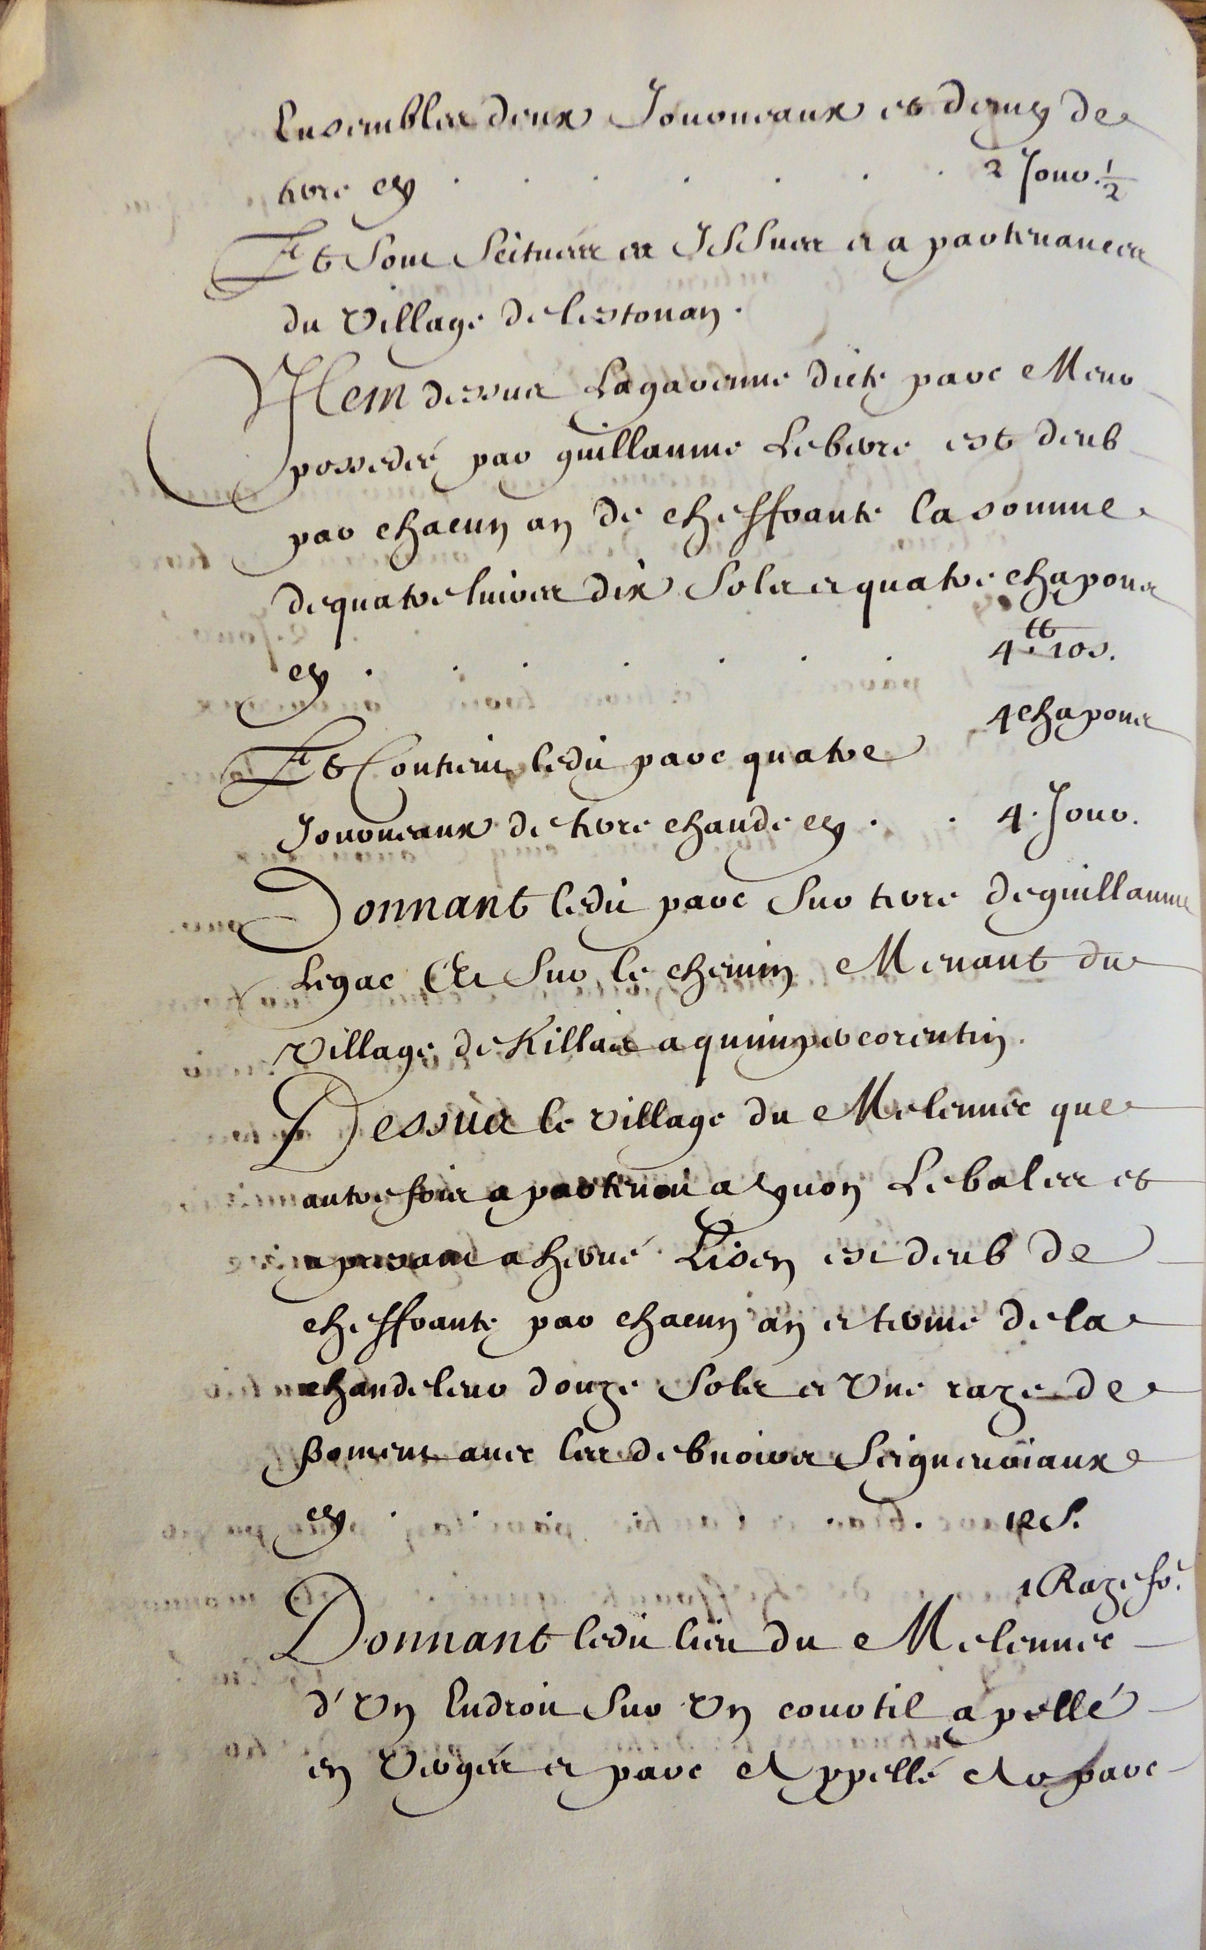 Ensembles deux Journeaux et demy de
terre cy . . . . . . . 2 Jour. 1/2
Et sont scituées es Issues et apartenances
du village de lestonan .
Item dessus La garenne dicte parc Meur
possedée par guillaume Leberre est deub
par chacun an de cheffrante la somme
de quatre livres dix sols et quatre chapons
cy . . . . . . . 4tt. 10s.
4 chapons
Et Contient ledit parc quatre
Journeaux de terre chaude cy . . 4. Jour.
Donnant ledit parc sur terre de guillaume
Legac Et sur le chemin Menant du
village de Killais a quimper corentin.
Dessus le village du Melennec que
autresfois apartenoit a yuon Lebaler et
a presant a hervé est deub de
cheffrante par chacun an et terme de la
chandeleur douze sols et une raze de
froment avec les debuoirs seigneuriaux
cy . . . . . . . 12 s.
1 Raze fr.
Donnant ledit lieu du Melennec
d'un Endroit sur un courtil apellé
en verger et parc Appellé Ar parc